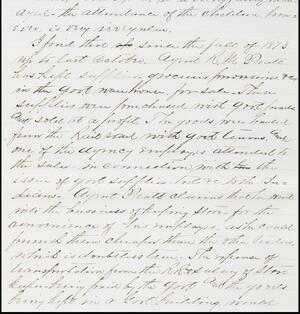 the attendance of the children how
ever, is very irregular.
I find that since the fall of 1873
up to last October, Agent
has kept supplies, groceries provisions &c
in the Govt warehouse for sale. These
supplies were purchased with Govt funds
and sold at a profit. The goods were hauled
from the Rail road with Govt teams, and
one of the Agency employes attended to
the sales in connection with the
issue of Govt supplies &c to the In-
dians. Agent claims that he went
into the business of keeping Store for the
convenience of his employes, as he could
furnish them cheaper than the other traders,
which is doubtless true. The expense of
transportation from the R.R. & salary of Store
keeper being paid by the Govt & the goods
being kept in a Govt building, would